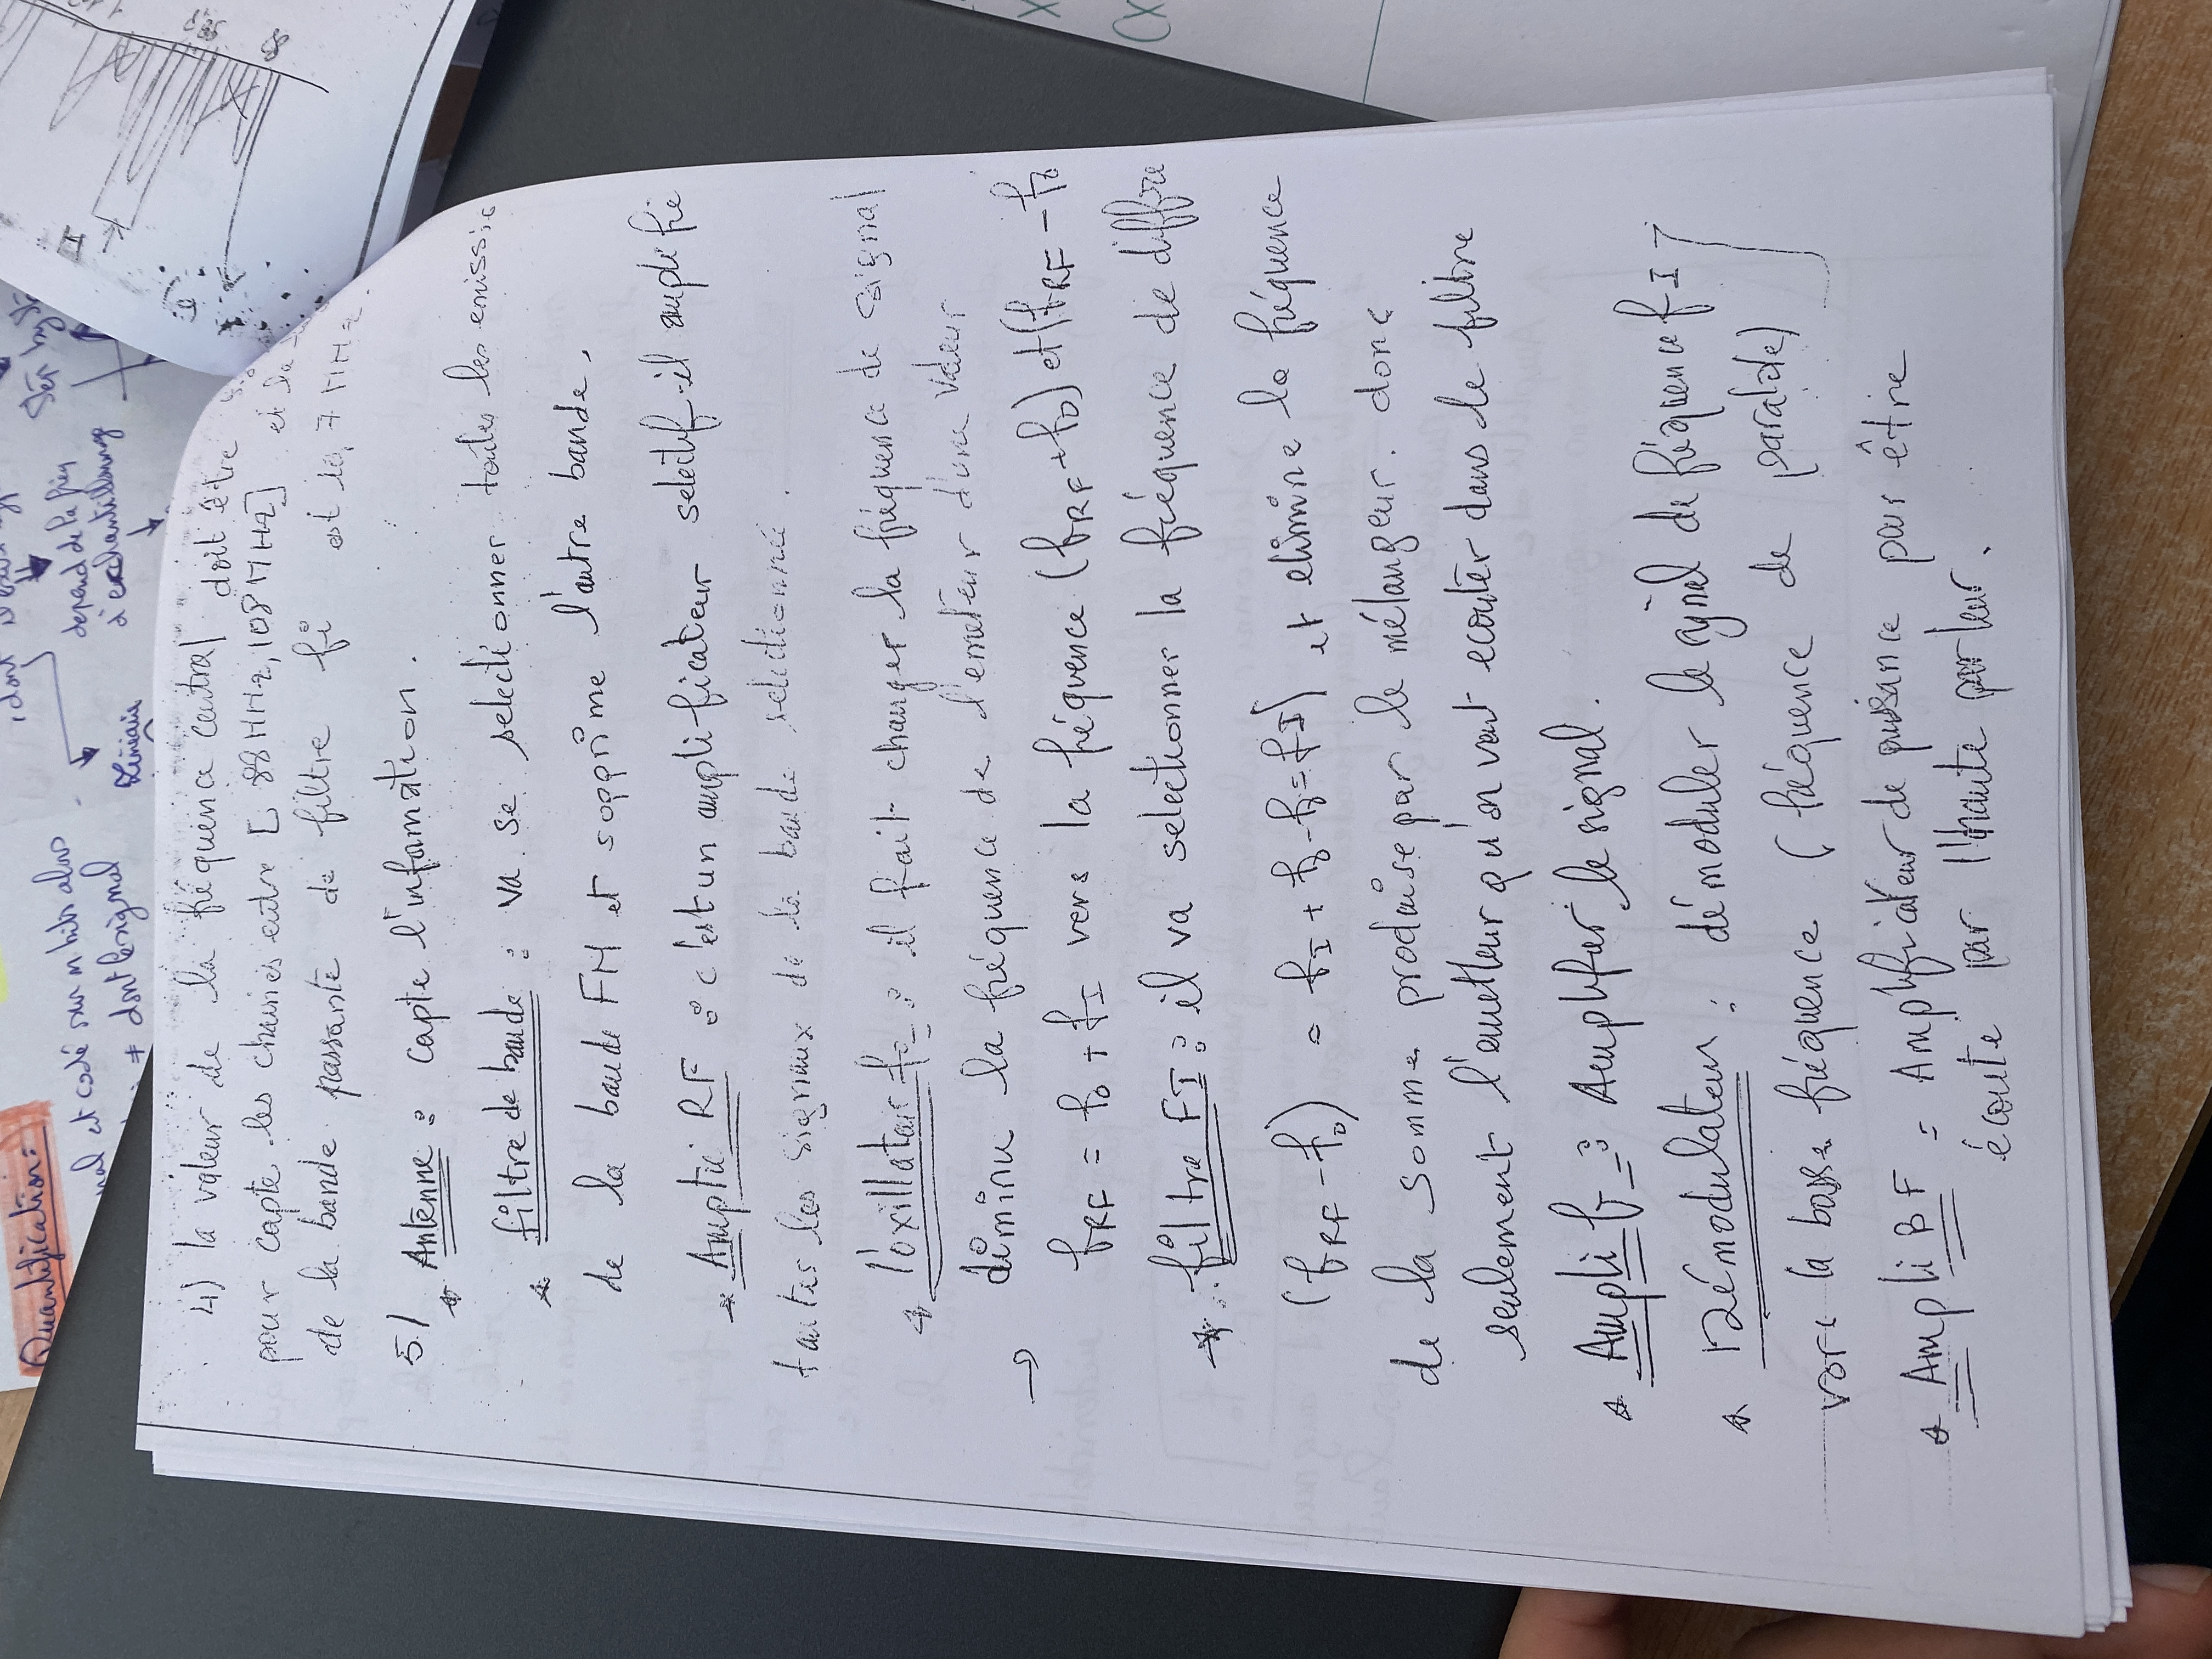 Quantification:
nal et codé sur n bits alors
≠ dont le signal
Linéaire
depend de la fréq
d'echantillonnage
Step by
4) la valeur de la fréquence central doit être
pour capte les chaines entre [88MHz, 108MHz] et la
de la bande passante de filtre fi est 10,7 MHz
5/ * Antenne : capte l'information.
* filtre de bande : va se selectionner toutes les emissio
de la bande FM et supprime l'autre bande.
* Amplie RF : c'est un amplificateur selectif il amplifie
toutes les signaux de la bande selectionnée.
* l'oxillateur fo : il fait changer la fréquence de signal
diminu la fréquence de l'emeteur d'une valeur
→ fRF = fo + fI vers la fréquence (fRF + fo) et (fRF - fo
* filtre FI : il va selectionner la fréquence de diffre
(fRF - fo) = fI + fo - fo = fI) et elimine la fréquence
de la somme produise par le mélangeur. donc
seulement l'emetteur qu'on veut ecouter dans le filtre
* Ampli f : Amplifier le signal.
* Démodulateur : démoduler le signal de fréquence fI
vers la basse fréquence (fréquence de
* Ampli BF = Amplificateur de puissance pour être
écouté par l'haute parleur.